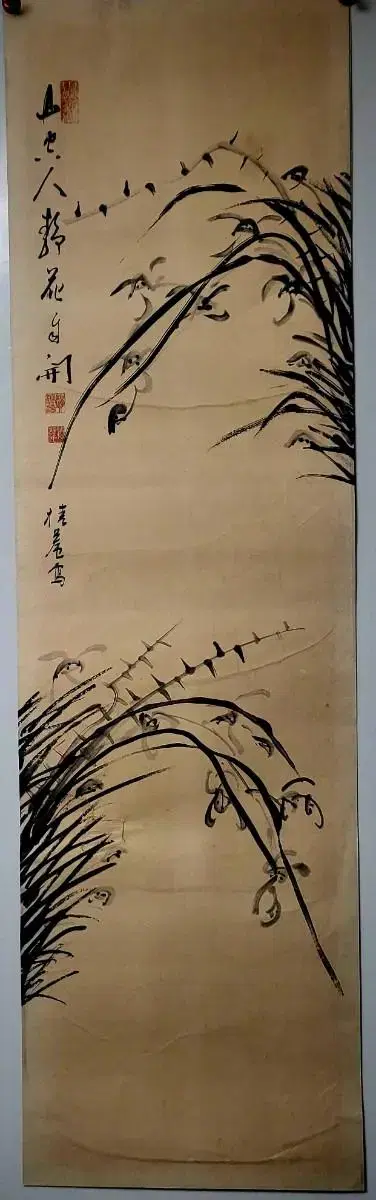 山空人静花自開
桂 写